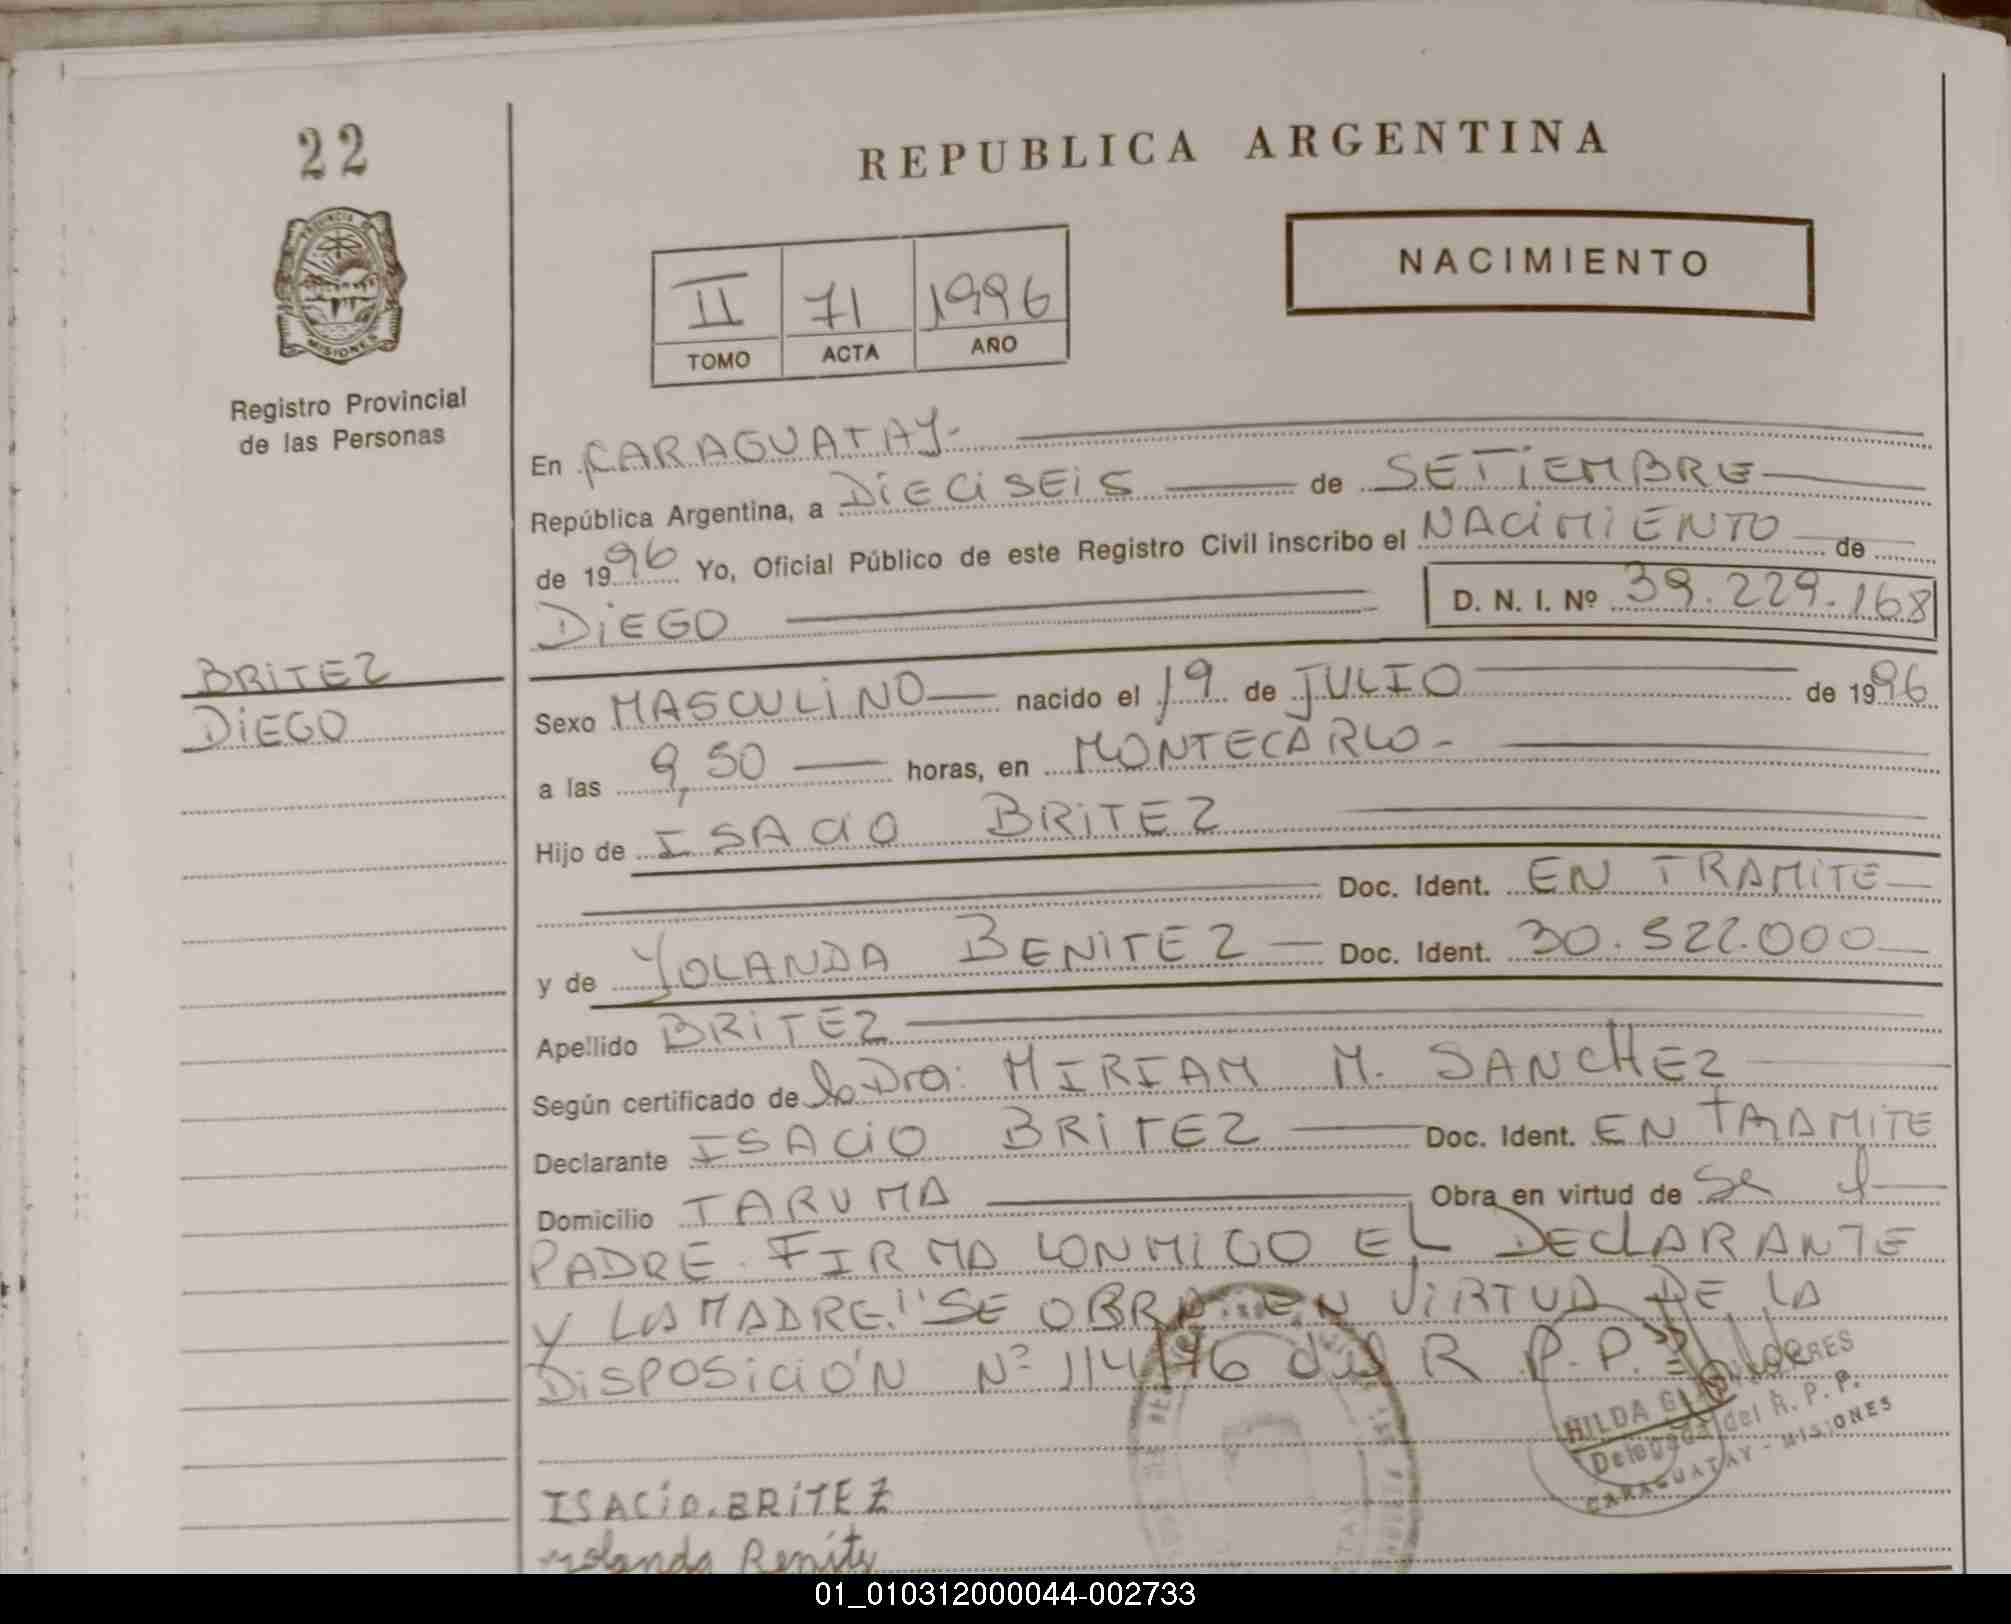 22
PROVINCIA DE
MISIONES
Registro Provincial
de las Personas
BRITEZ
DIEGO
REPUBLICA ARGENTINA
NACIMIENTO
II 71 1996
TOMO ACTA AÑO
En CARAGUATAY-
República Argentina, a DIECISEIS de SETIEMBRE
de 1996 Yo, Oficial Público de este Registro Civil inscribo el NACIMIENTO de
DIEGO D. N. I. Nº 39.229.168
Sexo MASCULINO nacido el 19 de JULIO de 1996
a las 9,50 horas, en MONTECARLO-
Hijo de ISACIO BRITEZ
Doc. Ident. EN TRAMITE
y de YOLANDA BENITEZ Doc. Ident. 30.522.000
Apellido BRITEZ
Según certificado de la Dra: MIRIAM M. SANCHEZ
Declarante ISACIO BRITEZ Doc. Ident. EN TRAMITE
Domicilio TARUMA Obra en virtud de Se l
PADRE. FIRMA CONMIGO EL DECLARANTE
Y LA MADRE. "SE OBRA EN VIRTUD DE LA
DISPOSICIÓN Nº 114/96 del R P.P."
HILDA TORRES
Delegada del R. P. P.
CARAGUATAY - MISIONES
ISACIO. BRITEZ
Yolanda Benitez
01_010312000044-002733